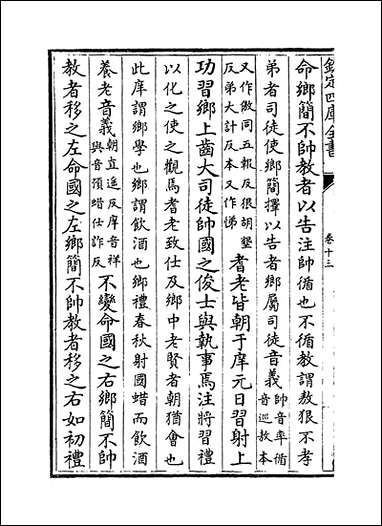 欽定四庫全書 卷十三
命鄉簡不帥教者以告注帥循也不循教謂敖狠不孝
弟者司徒使鄉簡擇以告者鄉屬司徒音義帥音率循音巡敖本
又作傲同五報反狠胡墾反弟大計反本又作悌耆老皆朝于庠元日習射上
功習鄉上齒大司徒帥國之俊士與執事焉注將習禮
以化之使之觀焉耆老致仕及鄉中老賢者朝猶會也
此庠謂鄉學也鄉謂飲酒也鄉禮春秋射國蜡而飲酒
養老音義朝直遥反庠音祥與音預蜡仕詐反不變命國之右鄉簡不帥
教者移之左命國之左鄉簡不帥教者移之右如初禮